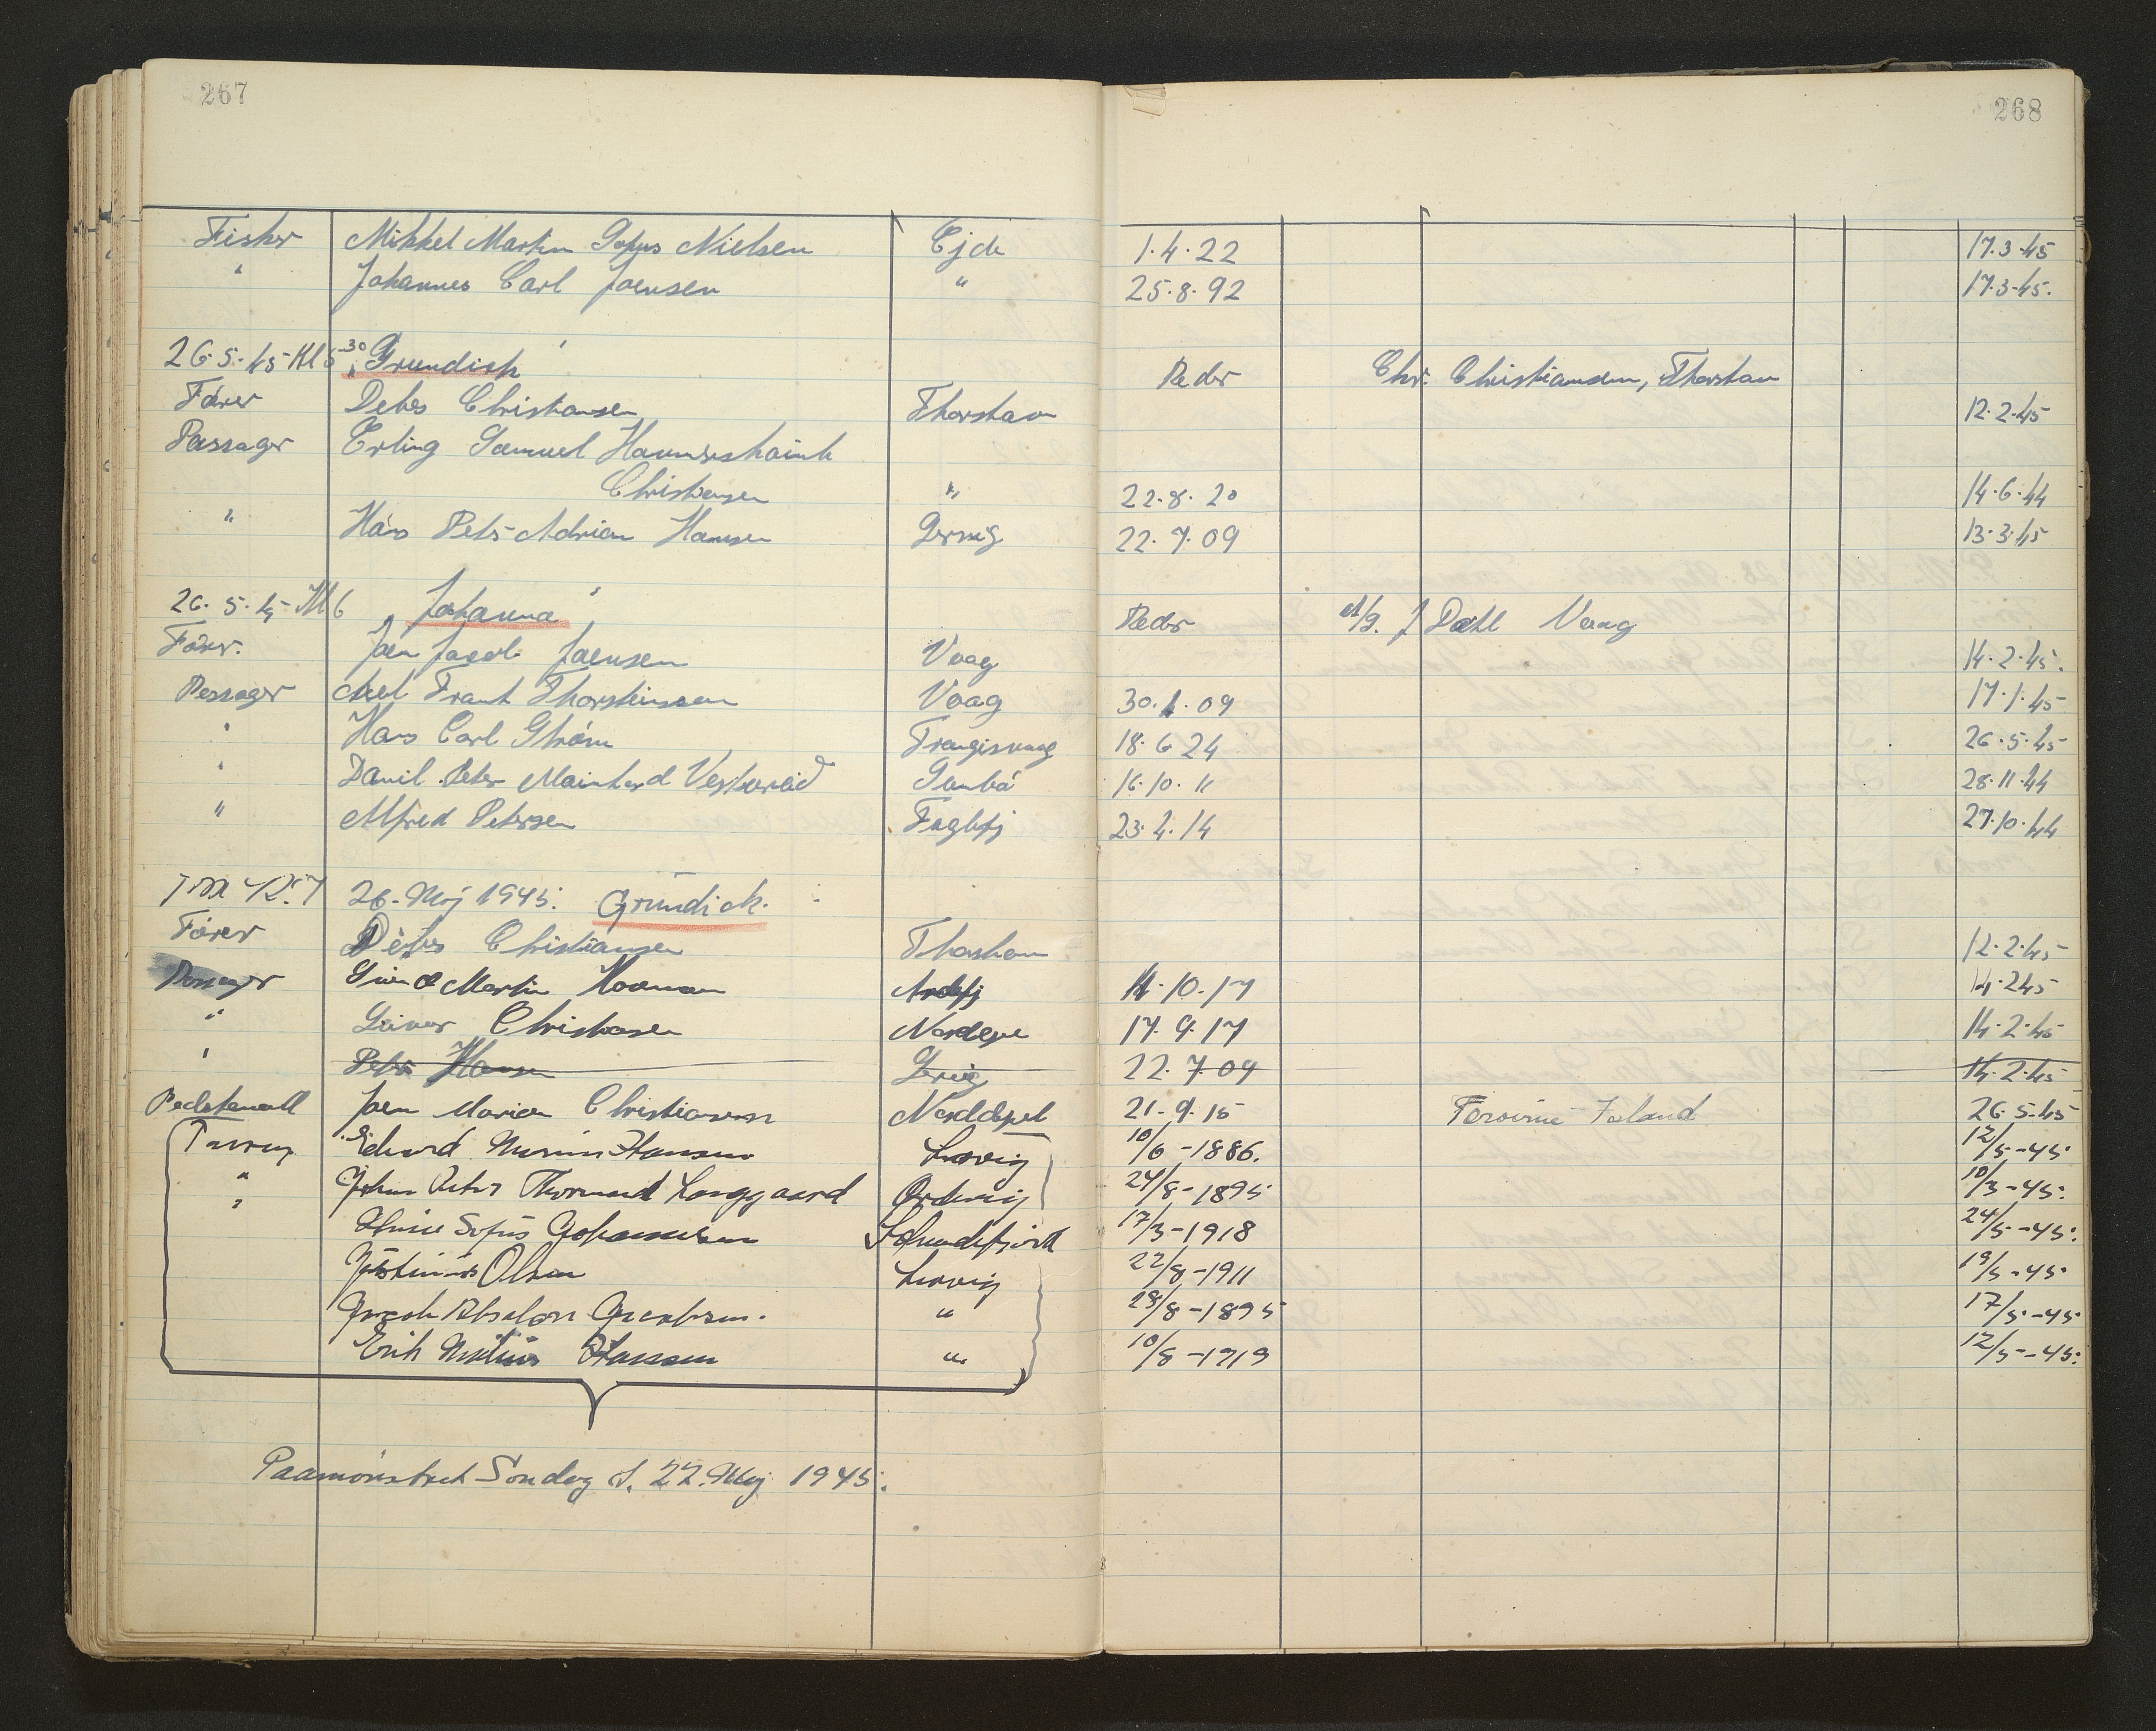 267
268
Fisker Mikkel Martin Sofus Nielsen Ejde 1.4.22 17.3.45
" Johannes Carl Joensen " 25.8.92 17.3.45.
26.5.45 Kl 6 30 "Grundick" Reder Chr. Christiansen, Thorshavn
Fører Debes Christiansen Thorshavn 12.2.45
Passager Erling Samuel
Christiansen " 22.8.20 14.6.44
" Hans Peter Adrian Hansen 22.7.09 13.3.45
26.5.45 Kl 6 "Johanna" Reder A/S. J Dahl Vaag
Fører. Joen Jacob Joensen Vaag 14.2.45.
Passager Axel Frants Thorsteinsson Vaag 30.1.09 17.1.45
" Hans Carl Strøm Trangisvaag 18.6 24 26.5.45
" Daniel Peter Mainhard Vesturtúð Sandö 16.10.11 28.11.44
" Alfred Petersen Fuglefj 23.2.14 27.10.44
26. Maj 1945. Grundick.
Fører Debes Christiansen Thorshavn 12.2.45
Passager Martin 14.10.17 14.2.45
" Christiansen Norddepel 17.9.17 14.2.45
" Peter Hansen 22.7.09 14.2.45
Joen Marian Christiansen Norddepel 21.9.15 Færøerne Island 26.5.45
Edvard Hansen Lervig 10/6 -1886. 12/5 -45.
" Johan Peter Thormund Langgaard Ordevig 24/8 -1895 10/3 -45.
" Sofus Johannesen Skaalefjord 17/3 -1918 24/5 -45.
Justinus Olsen Lervig 22/8 -1911 19/5 -45
Jacob Absalon Jacobsen. " 28/8 -1895 17/5 -45
Erik Hansen " 10/8 -1919 12/5 -45.
Paamønstret Søndag d. 27. Maj 1945.